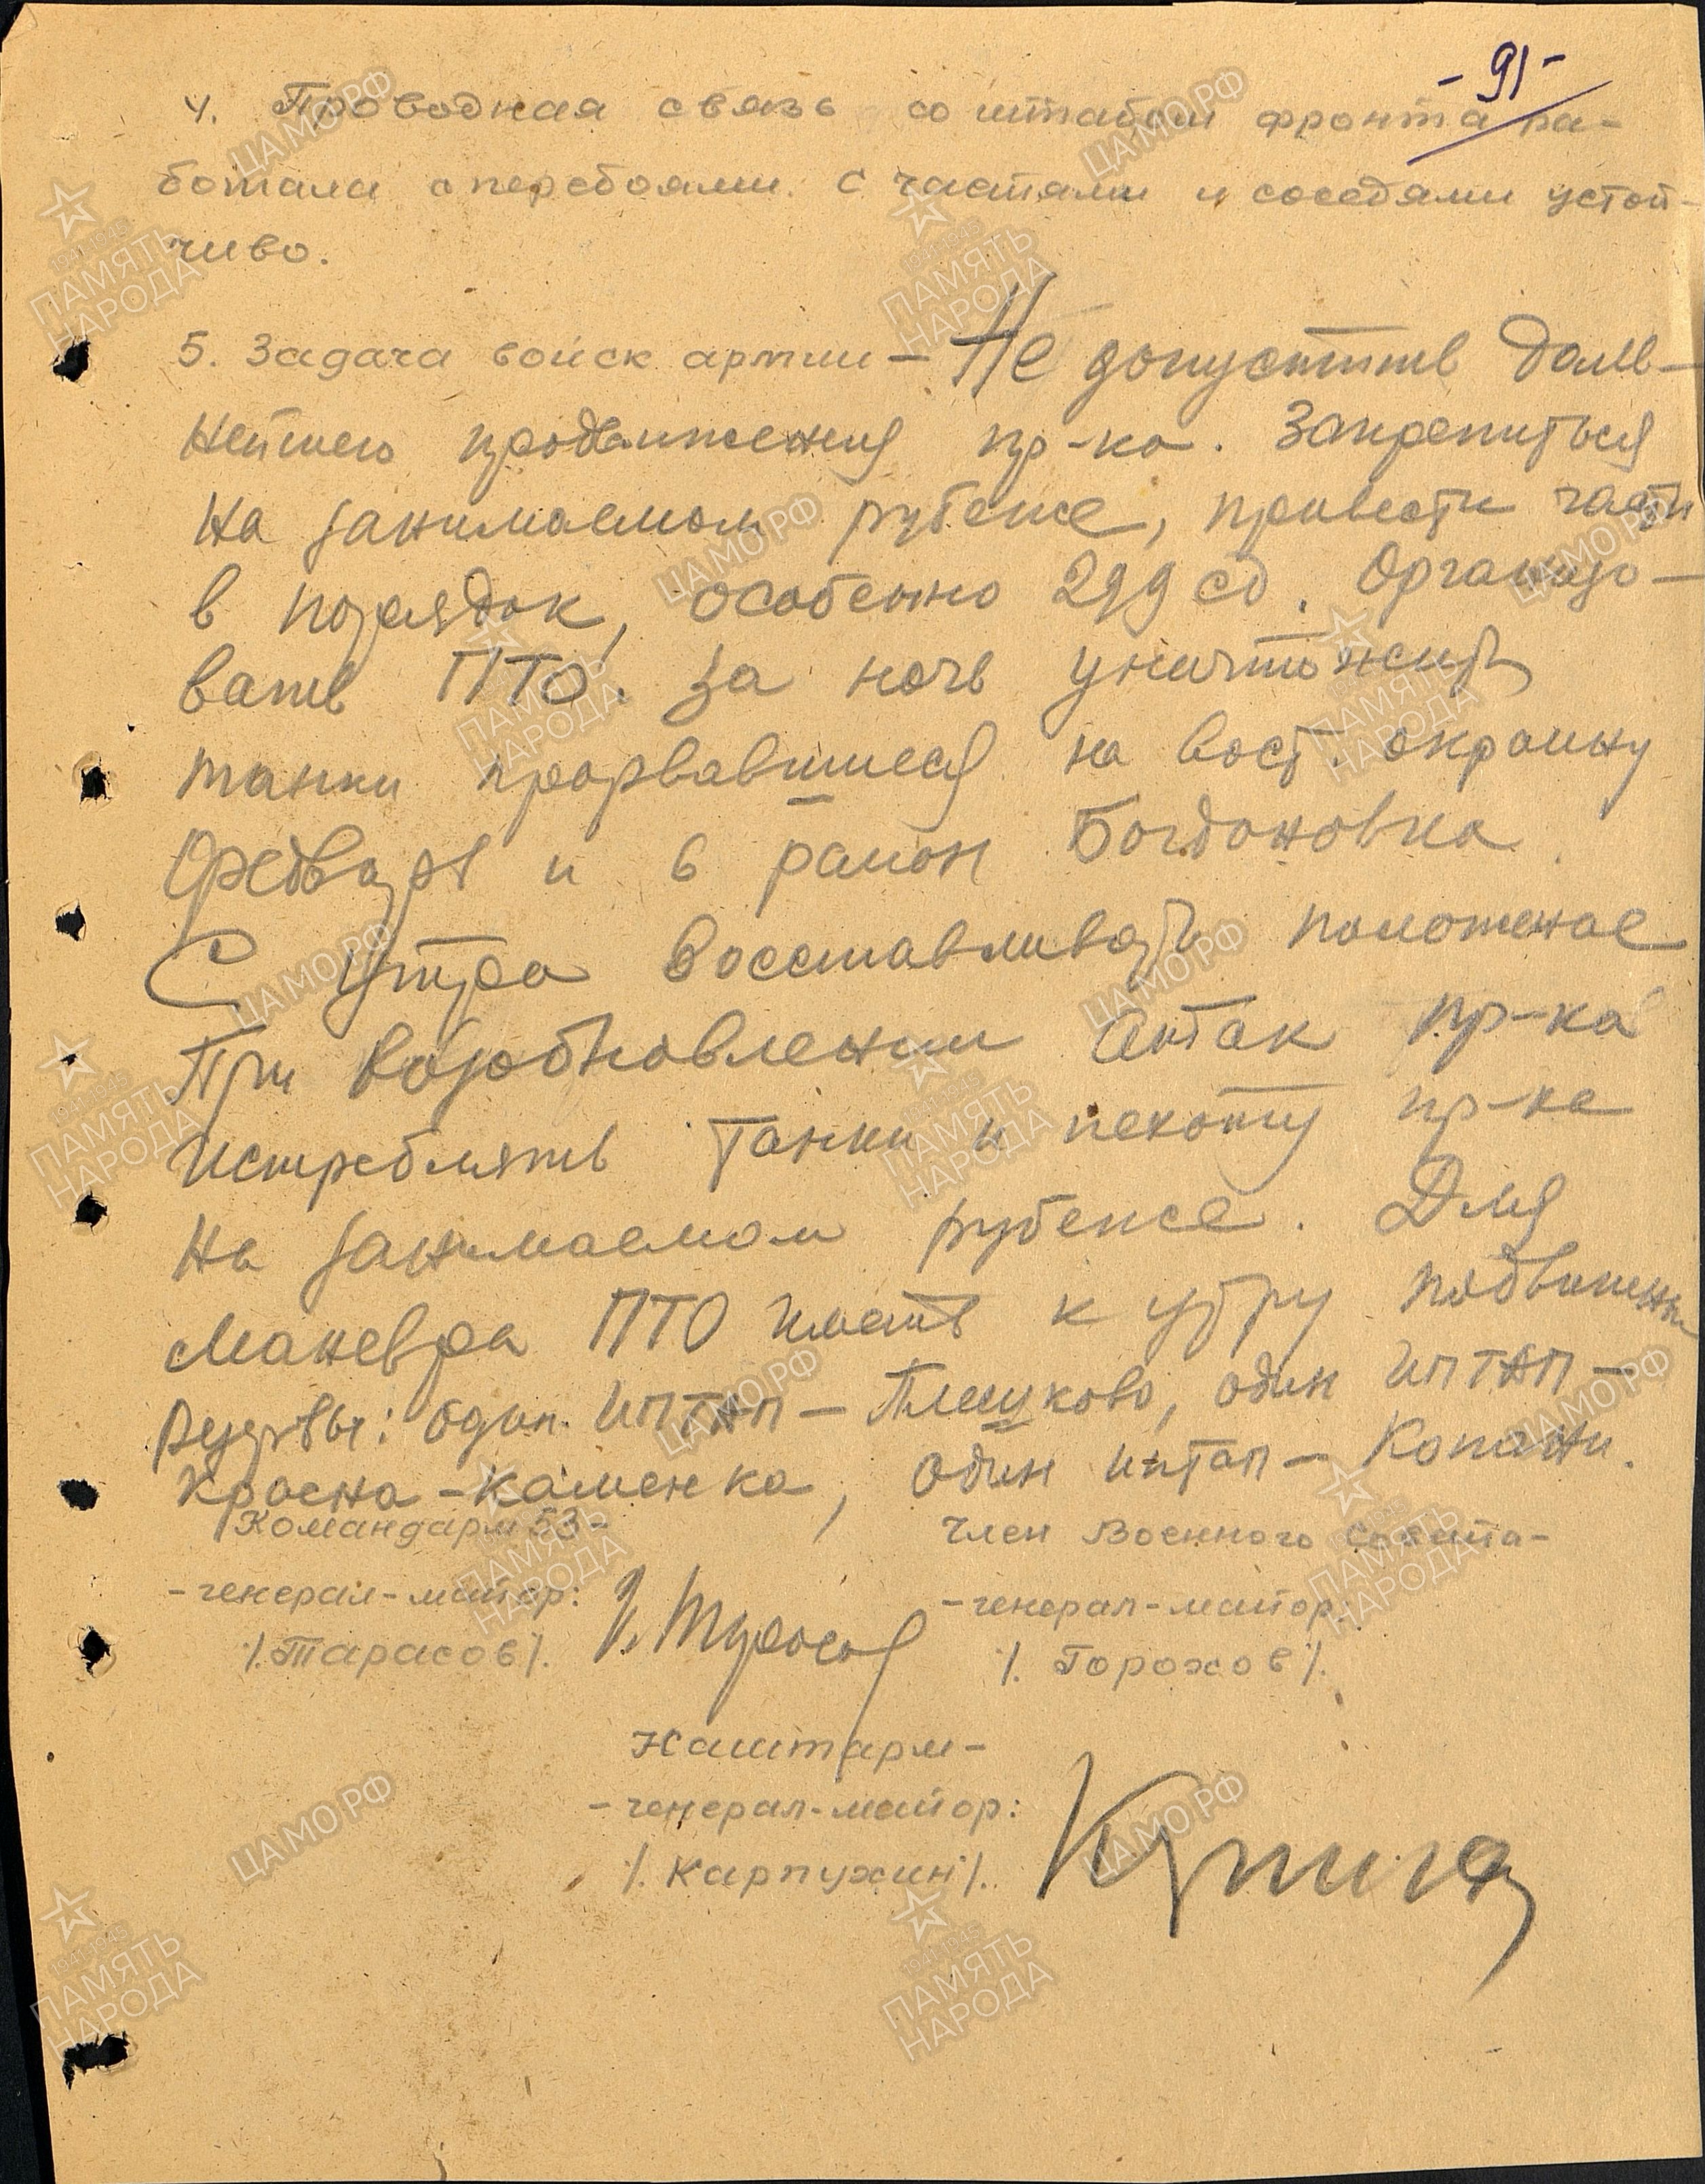 -91-
4. Проводная связь со штабом фронта ра-
ботала с перебоями. С частями и соседями устой-
чиво.
5. Задача войск армии — Не допустить даль-
нейшего продвижения пр-ка. Закрепиться
на занимаемом рубеже, привести части
в порядок, особенно 299 сд. Организо-
вать ПТО. За ночь уничтожить
танки прорвавшиеся на вост. окраину
Федварь и в район Богдановка.
С утра восставливать положение
При возобновлении Актак пр-ка
истреблять танки и пехоту пр-ка
на занимаемом рубеже. Для
маневра ПТО иметь к утру подвижны
резервы: один ИПТАП — Плешково, один ИПТАП —
Красна-Каменка, один иптап — Копани.
Командарм 53-
Член Военного Совета-
-генерал-майор:
-генерал-майор:
/.Тарасов/.
/. Горохов/.
Наштарм-
-генерал-майор:
/. Карпухин/.
ЦАМО.РФ
1941-1945
ПАМЯТЬ
НАРОДА